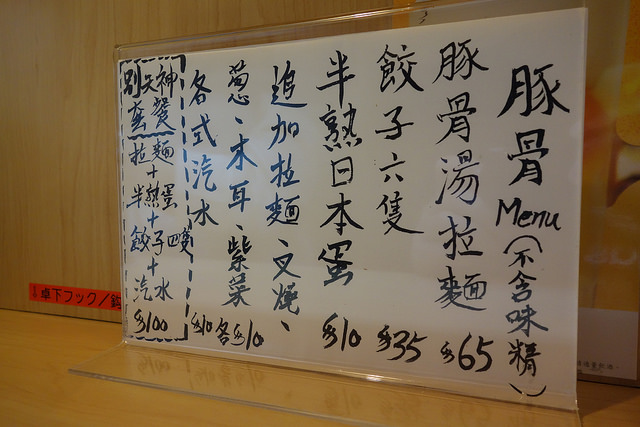 豚骨Menu(不含味精)
豚骨湯拉麵 $65
餃子六隻 $35
半熟日本蛋 $10
追加拉麵、叉燒、
葱、木耳、紫菜 各$10
各式汽水 $10
別天神
套餐
拉麵
+
半熟蛋
+
餃子四隻
+
汽水
$100
卓下フック/